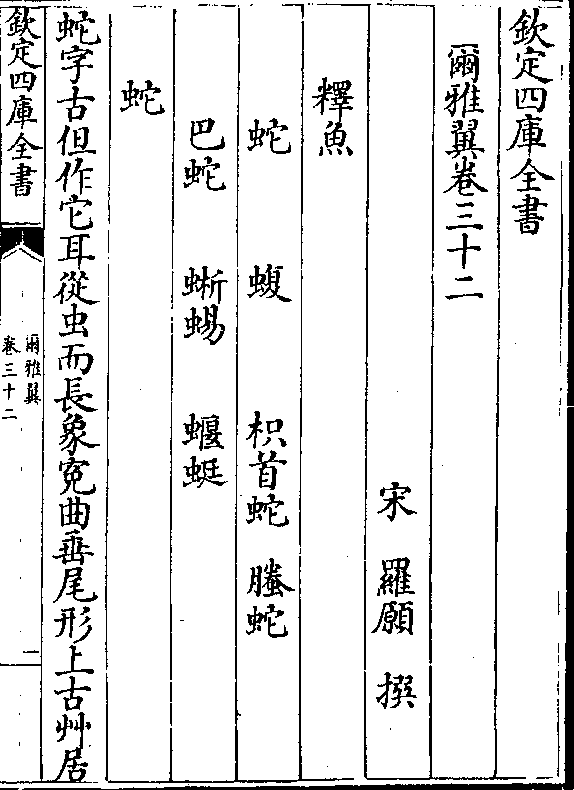 欽定四庫全書
爾雅翼卷三十二
宋 羅願 撰
釋魚
蛇 蝮 枳首蛇 螣蛇
巴蛇 蜥蜴 蝘蜓
蛇
蛇字古但作它耳從虫而長象寃曲垂尾形上古艸居
欽定四庫全書
爾雅翼
卷三十二
一